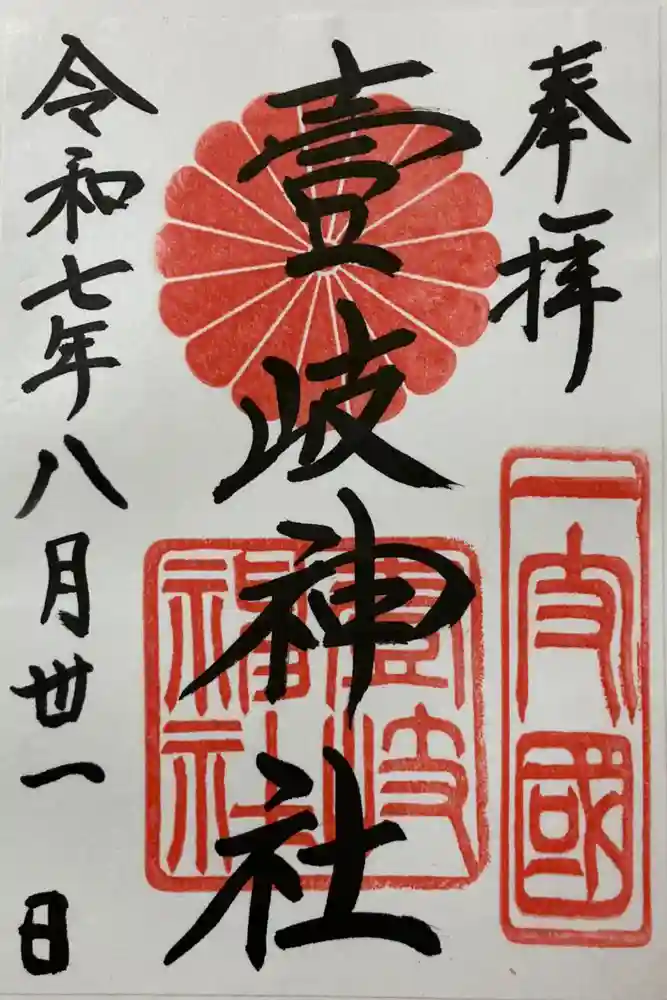 奉拝
一支國
壹岐神社
壹岐
社
令和七年八月丗一日